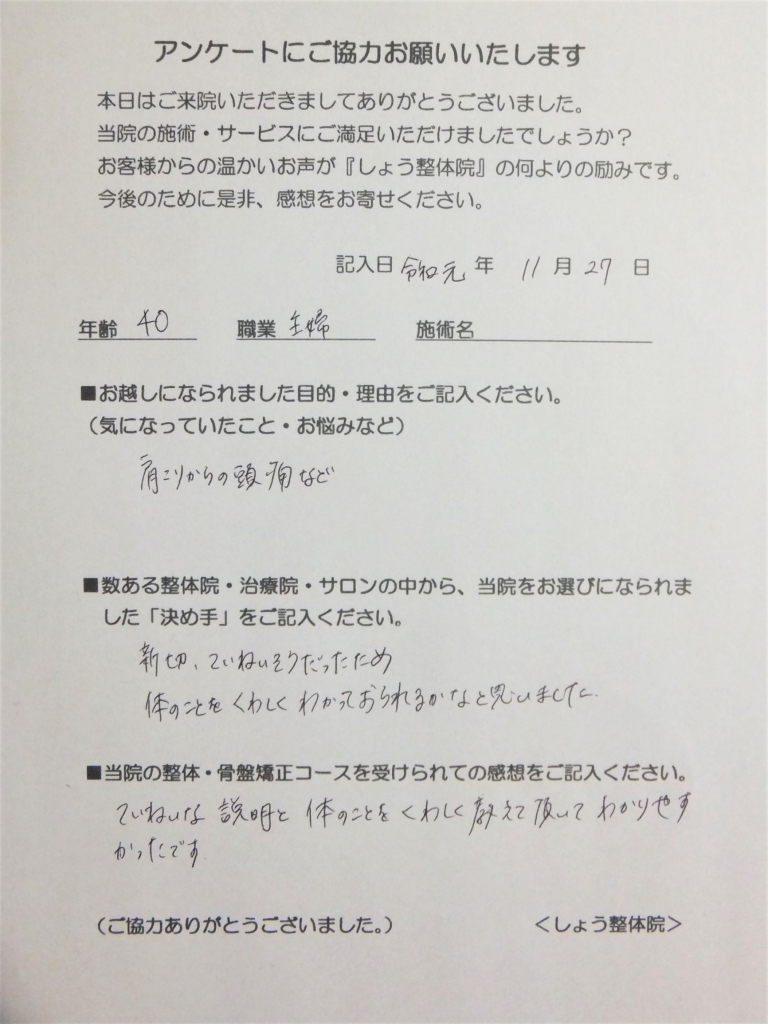 アンケートにご協力お願いいたします
本日はご来院いただきましてありがとうございました。
当院の施術・サービスにご満足いただけましたでしょうか？
お客様からの温かいお声が『しょう整体院』の何よりの励みです。
今後のために是非、感想をお寄せください。
記入日 令和元 年 11 月 27 日
年齢 40 職業 主婦 施術名
■お越しになられました目的・理由をご記入ください。
（気になっていたこと・お悩みなど）
肩こりからの頭痛など
■数ある整体院・治療院・サロンの中から、当院をお選びになられま
した「決め手」をご記入ください。
新切、ていねいそうだったため
体のことをくわしくわかっておられるかなと思いました。
■当院の整体・骨盤矯正コースを受けられての感想をご記入ください。
ていねいな説明と体のことをくわしく教えて頂いてわかりやす
かったです。
（ご協力ありがとうございました。） ＜しょう整体院＞